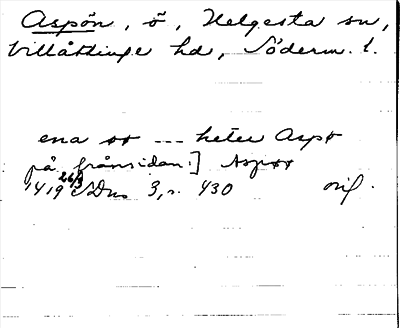 Aspön, ö, Helgesta sn,
Villåttinge hd, Söderm. l.
ena oo --- heter Aspo
på frånsidan:] Aspoo
1419 26/3 SDns 3, s. 430 orig.